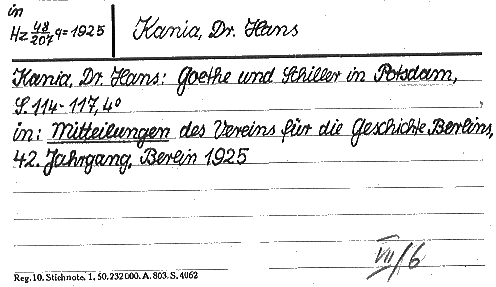 in
Hz 48/207 q=1925
Kania, Dr. Hans
Kania, Dr. Hans: Goethe und Schiller in Potsdam,
S. 114-117, 4°
in: Mitteilungen des Vereins für die Geschichte Berlins,
42. Jahrgang, Berlin 1925
VII/6
Reg. 10. Stichnote. 1. 50. 232 000. A. 803. S. 4062